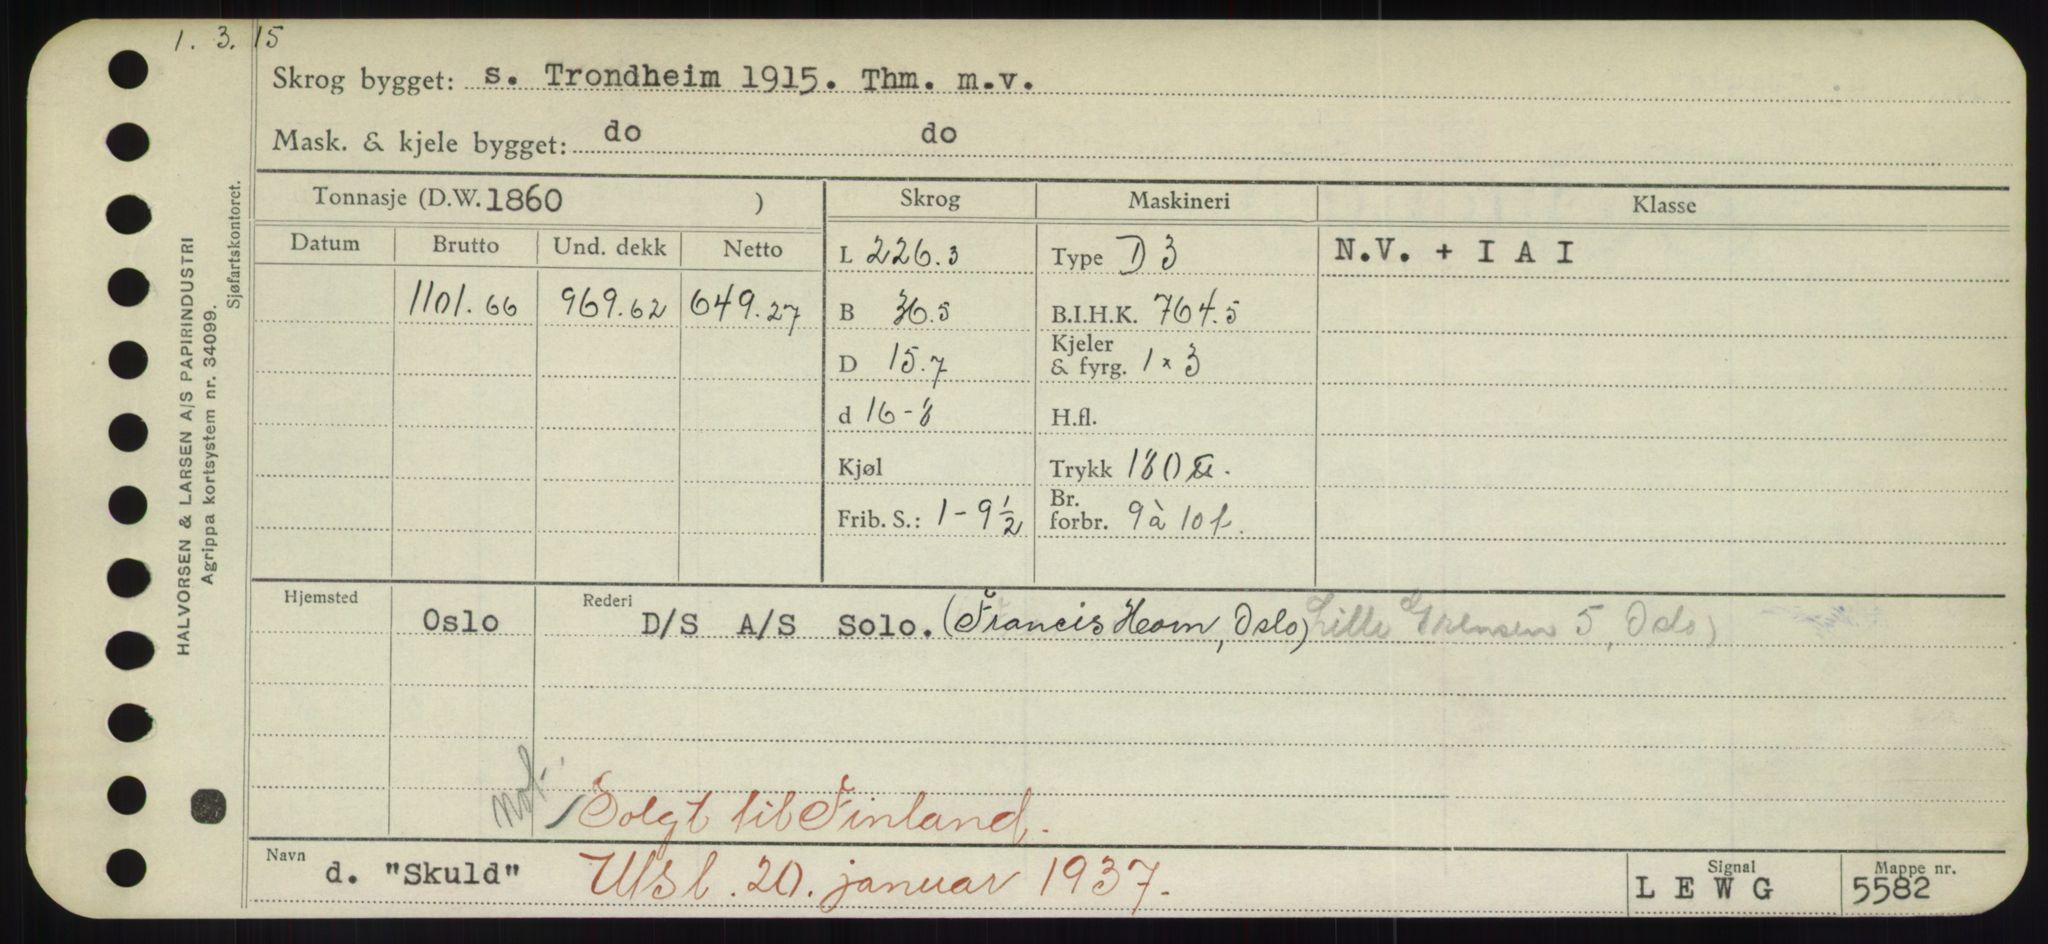 1. 3. 15
Skrog bygget: s. Trondheim 1915. Thm. m.v.
Mask. & kjele bygget: do do
HALVORSEN & LARSEN A/S PAPIRINDUSTRI
Agrippa kortsystem nr. 34099.
Sjøfartskontoret.
Tonnasje (D.W. 1860 ) Skrog Maskineri Klasse
Datum Brutto Und. dekk Netto
L 226.3 Type D 3 N.V. + I A I
1101.66 969.62 649.27 B 36.5 B.I.H.K. 764.5
D 15.7 Kjeler & fyrg. 1 × 3
d 16-8 H.fl.
Kjøl Trykk 180 ℔.
Frib. S.: 1-9½ Br. forbr. 9 à 10 t.
Hjemsted Oslo Rederi D/S A/S Solo. (Francis Horn, Oslo) Lille Grensen 5, Oslo)
not.
Solgt til Finland.
Navn d. "Skuld" Utsl. 20. januar 1937. Signal L E W G Mappe nr. 5582